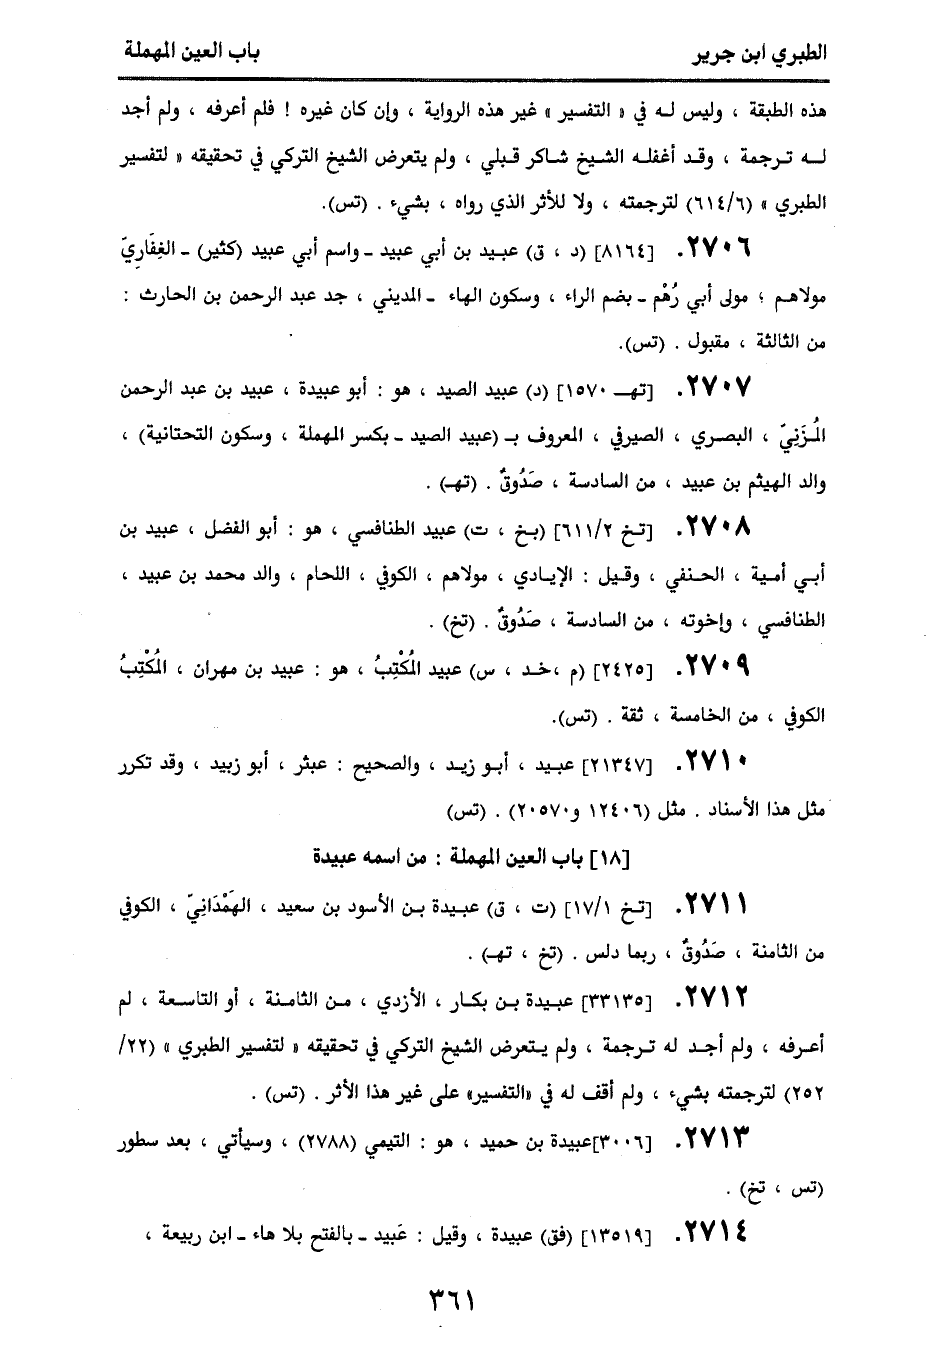 الطبري ابن جرير
باب العين المهملة
هذه الطبقة ، وليس له في « التفسير » غير هذه الرواية ، وإن كان غيره ! فلم أعرفه ، ولم أجد
له ترجمة ، وقد أغفله الشيخ شاكر قبلي ، ولم يتعرض الشيخ التركي في تحقيقه « لتفسير
الطبري » (٦١٤/٦) لترجمته ، ولا للأثر الذي رواه ، بشيء . (تس).
٢٧٠٦. [٨١٦٤] (د ، ق) عبيد بن أبي عبيد ـ واسم أبي عبيد (كثير) ـ الغِفَاريّ
مولاهم ؛ مولى أبي رُهْم ـ بضم الراء ، وسكون الهاء ـ المديني ، جد عبد الرحمن بن الحارث :
من الثالثة ، مقبول . (تس).
٢٧٠٧. [تهـ ١٥٧٠] (د) عبيد الصيد ، هو : أبو عبيدة ، عبيد بن عبد الرحمن
المُزَنِيّ ، البصري ، الصيرفي ، المعروف بـ (عبيد الصيد ـ بكسر المهملة ، وسكون التحتانية) ،
والد الهيثم بن عبيد ، من السادسة ، صَدُوقٌ . (تهـ) .
٢٧٠٨. [تخ ٦١١/٢] (بخ ، ت) عبيد الطنافسي ، هو : أبو الفضل ، عبيد بن
أبي أمية ، الحنفي ، وقيل : الإيادي ، مولاهم ، الكوفي ، اللحام ، والد محمد بن عبيد ،
الطنافسي ، وإخوته ، من السادسة ، صَدُوقٌ . (تخ) .
٢٧٠٩. [٢٤٢٥] (م ،خد ، س) عبيد المُكْتِبُ ، هو : عبيد بن مهران ، المُكْتِبُ
الكوفي ، من الخامسة ، ثقة . (تس).
٢٧١٠. [٢١٣٤٧] عبيد ، أبو زيد ، والصحيح : عبثر ، أبو زبيد ، وقد تكرر
مثل هذا الأسناد . مثل (١٢٤٠٦ و٢٠٥٧٠) . (تس)
[١٨] باب العين المهملة : من اسمه عبيدة
٢٧١١. [تخ ١٧/١] (ت ، ق) عبيدة بن الأسود بن سعيد ، الهَمْدَانِيّ ، الكوفي
من الثامنة ، صَدُوقٌ ، ربما دلس . (تخ ، تهـ) .
٢٧١٢. [٣٣١٣٥] عبيدة بن بكار ، الأزدي ، من الثامنة ، أو التاسعة ، لم
أعرفه ، ولم أجد له ترجمة ، ولم يتعرض الشيخ التركي في تحقيقه « لتفسير الطبري » (٢٢/
٢٥٢) لترجمته بشيء ، ولم أقف له في «التفسير» على غير هذا الأثر . (تس) .
٢٧١٣. [٣٠٠٦]عبيدة بن حميد ، هو : التيمي (٢٧٨٨) ، وسيأتي ، بعد سطور
(تس ، تخ) .
٢٧١٤. [١٣٥١٩] (فق) عبيدة ، وقيل : عَبيد ـ بالفتح بلا هاء ـ ابن ربيعة ،
٣٦١